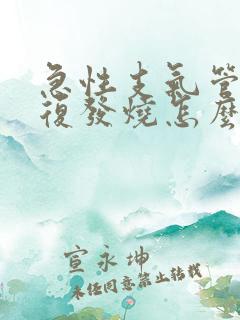 急性支氣管
復發燒怎麼
宣永坤
未經同意禁止轉載